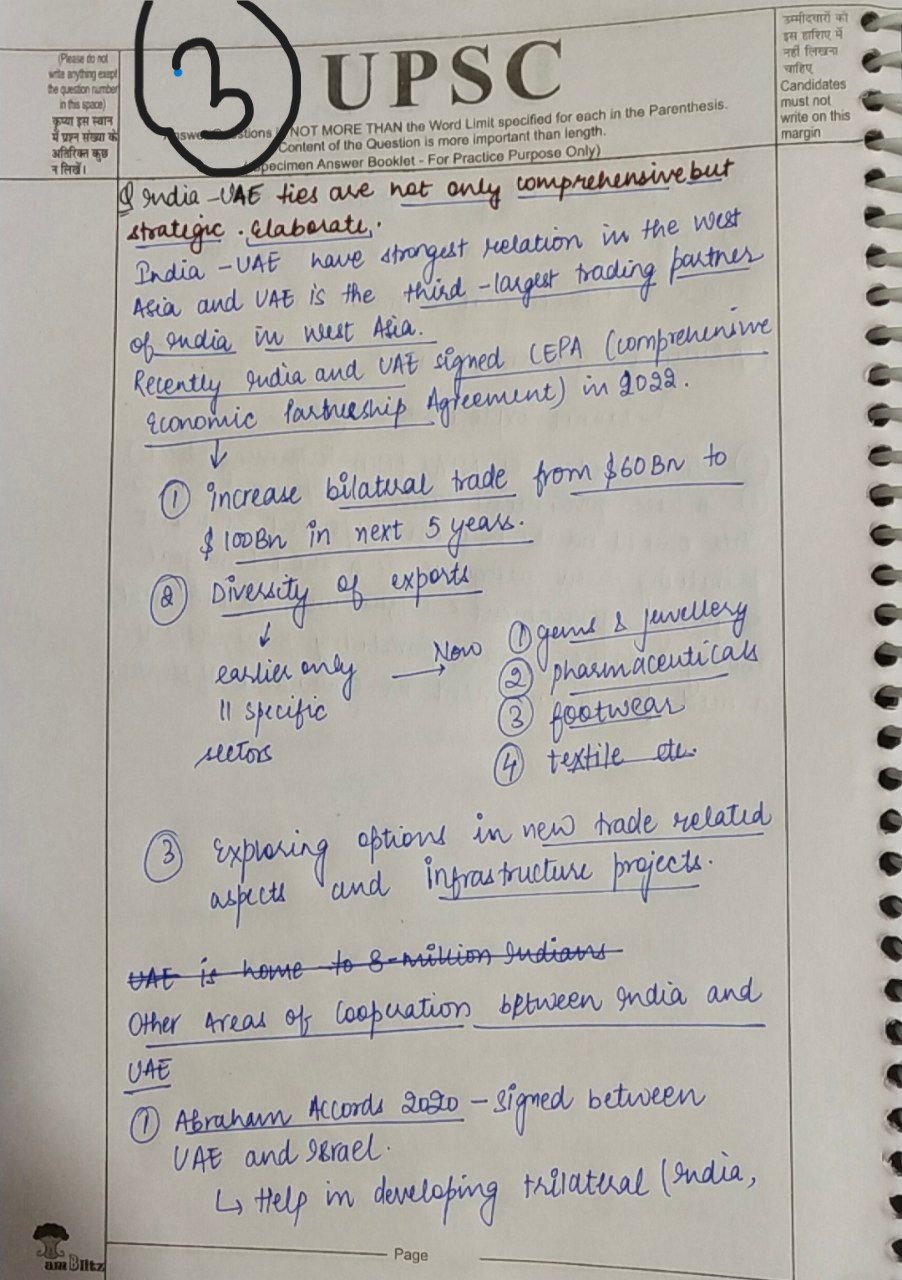 (Please do not
write anything exept
the question number
in this space)
कृप्या इस स्थान
में प्रश्न संख्या के
अतिरिक्त कुछ
न लिखें।
3
UPSC
Questions NOT MORE THAN the Word Limit specified for each in the Parenthesis.
Content of the Question is more important than length.
(Specimen Answer Booklet - For Practice Purpose Only)
उम्मीदवारों को
इस हाशिए में
नहीं लिखना
चाहिए
Candidates
must not
write on this
margin
Q India-UAE ties are not only comprehensive but
strategic. Elaborate.
India-UAE have strongest relation in the West
Asia and UAE is the third-largest trading partner
of India in West Asia.
Recently India and UAE signed CEPA (Comprehenive
Economic Partnership Agreement) in 2022.
↓
① increase bilatual trade from $60Bn to
$100Bn in next 5 years.
② Diversity of exports
↓
earlier only → Now
11 specific
sectors
① gems & jewellery
② pharmaceuticals
③ footwear
④ textile etc.
③ Exploring options in new trade related
aspects and infrastructure projects.
UAE is home to 3-million Indians
Other Areas of Cooperation between India and
UAE
① Abraham Accords 2020 - signed between
UAE and Israel.
↳ Help in developing trilateral (India,
Page